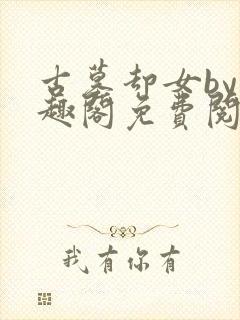 古墓却女by
趣阁免费阅
我有你有